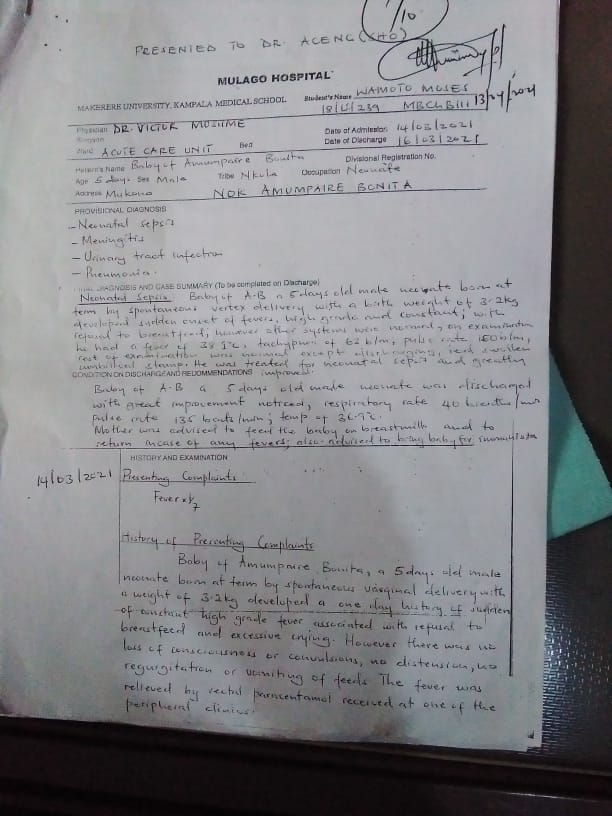 /10
PRESENTED TO DR. ACENG (SHO)
MULAGO HOSPITAL
MAKERERE UNIVERSITY, KAMPALA MEDICAL SCHOOL
Student's Name WAMOTO MOSES
18/U/239 MBChB III 13/04/2021
Physician DR. VICTOR MUSIIME
Surgeon
Ward ACUTE CARE UNIT Bed
Date of Admission 14/03/2021
Date of Discharge 16/03/2021
Patient's Name Baby of Amumpaire Bonita
Divisional Registration No.
Age 5 days Sex Male Tribe Occupation Neonate
Address Mukono NOK AMUMPAIRE BONITA
PROVISIONAL DIAGNOSIS
- Neonatal sepsis
- Meningitis
- Urinary tract infection
- Pneumonia.
DIAGNOSIS AND CASE SUMMARY (To be completed on Discharge)
Neonatal Sepsis: Baby of A.B a 5 days old male neonate born at
term by spontaneous vertex delivery with a birth weight of 3.2kg
developed sudden onset of fevers, high grade and constant, with
refusal to breastfeed, however other systems were normal, on examination
he had a fever of 38.9°C, tachypnea of 62 b/m, pulse rate 150 b/m,
rest of examination was normal except discharging, red swollen
umbilical stump. He was treated for neonatal sepsis and greatly
improved.
CONDITION ON DISCHARGE AND RECOMMENDATIONS
Baby of A.B a 5 days old male neonate was discharged
with great improvement noticed, respiratory rate 40 breaths/min
Pulse rate 135 beats/min; temp of 36.9°C.
Mother was advised to feed the baby on breastmilk and to
return incase of any fevers; also advised to bring baby for immunization
HISTORY AND EXAMINATION
14/03/2021 Presenting Complaints
Fever x 1/7
History of Presenting Complaints
Baby of Amumpaire Bonita, a 5 days old male
neonate born at term by spontaneous vaginal delivery with
a weight of 3.2kg developed a one day history of sudden
of constant high grade fever associated with refusal to
breastfeed and excessive crying. However there was no
loss of consciousness or convulsions, no distension, no
regurgitation or vomiting of feeds The fever was
relieved by rectal paracentamol received at one of the
peripheral clinics.